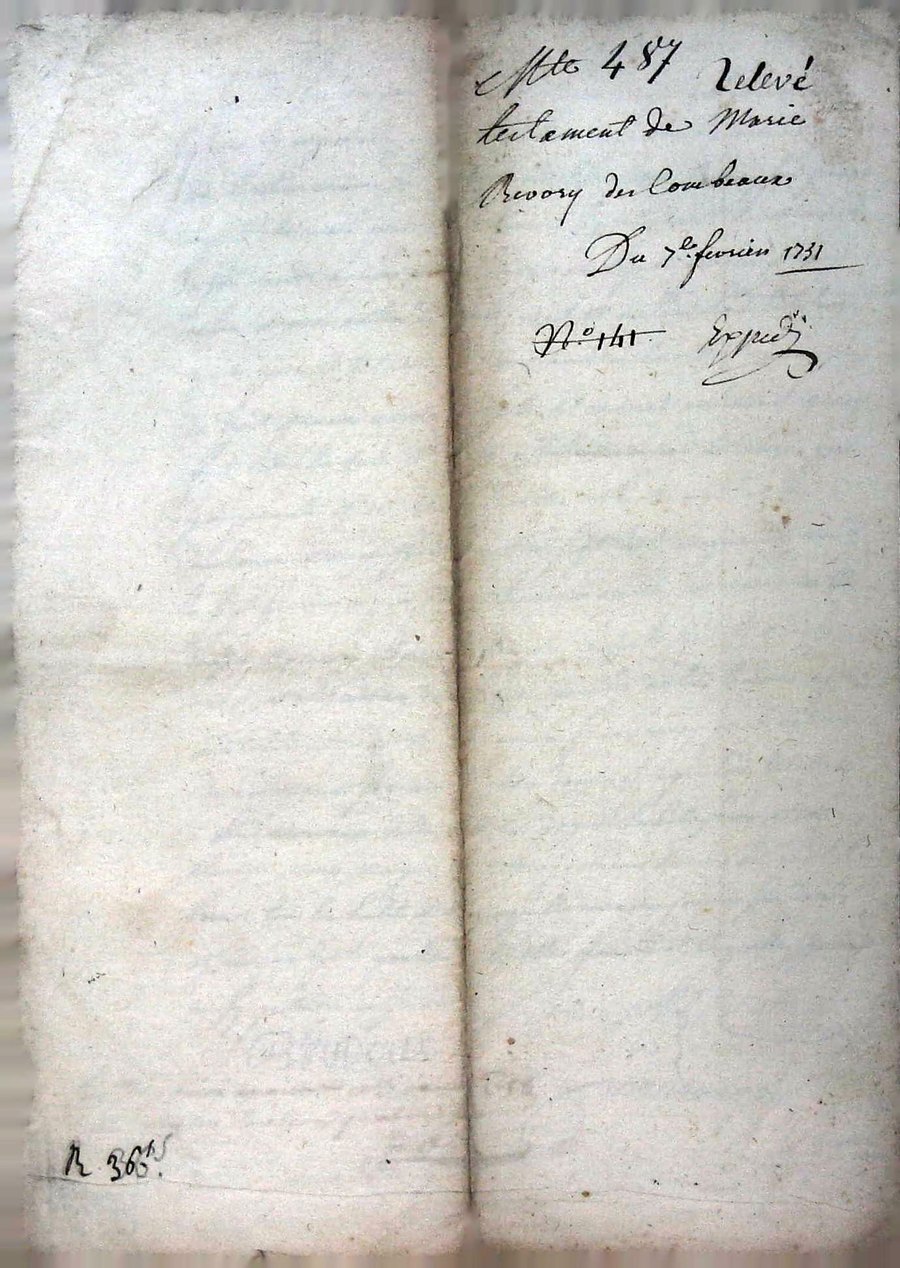 Mte 487 Relevé
testament de Marie
Revory des Combeaux
Du 7e fevrier 1731
N.º 141 Expedié
R. 36